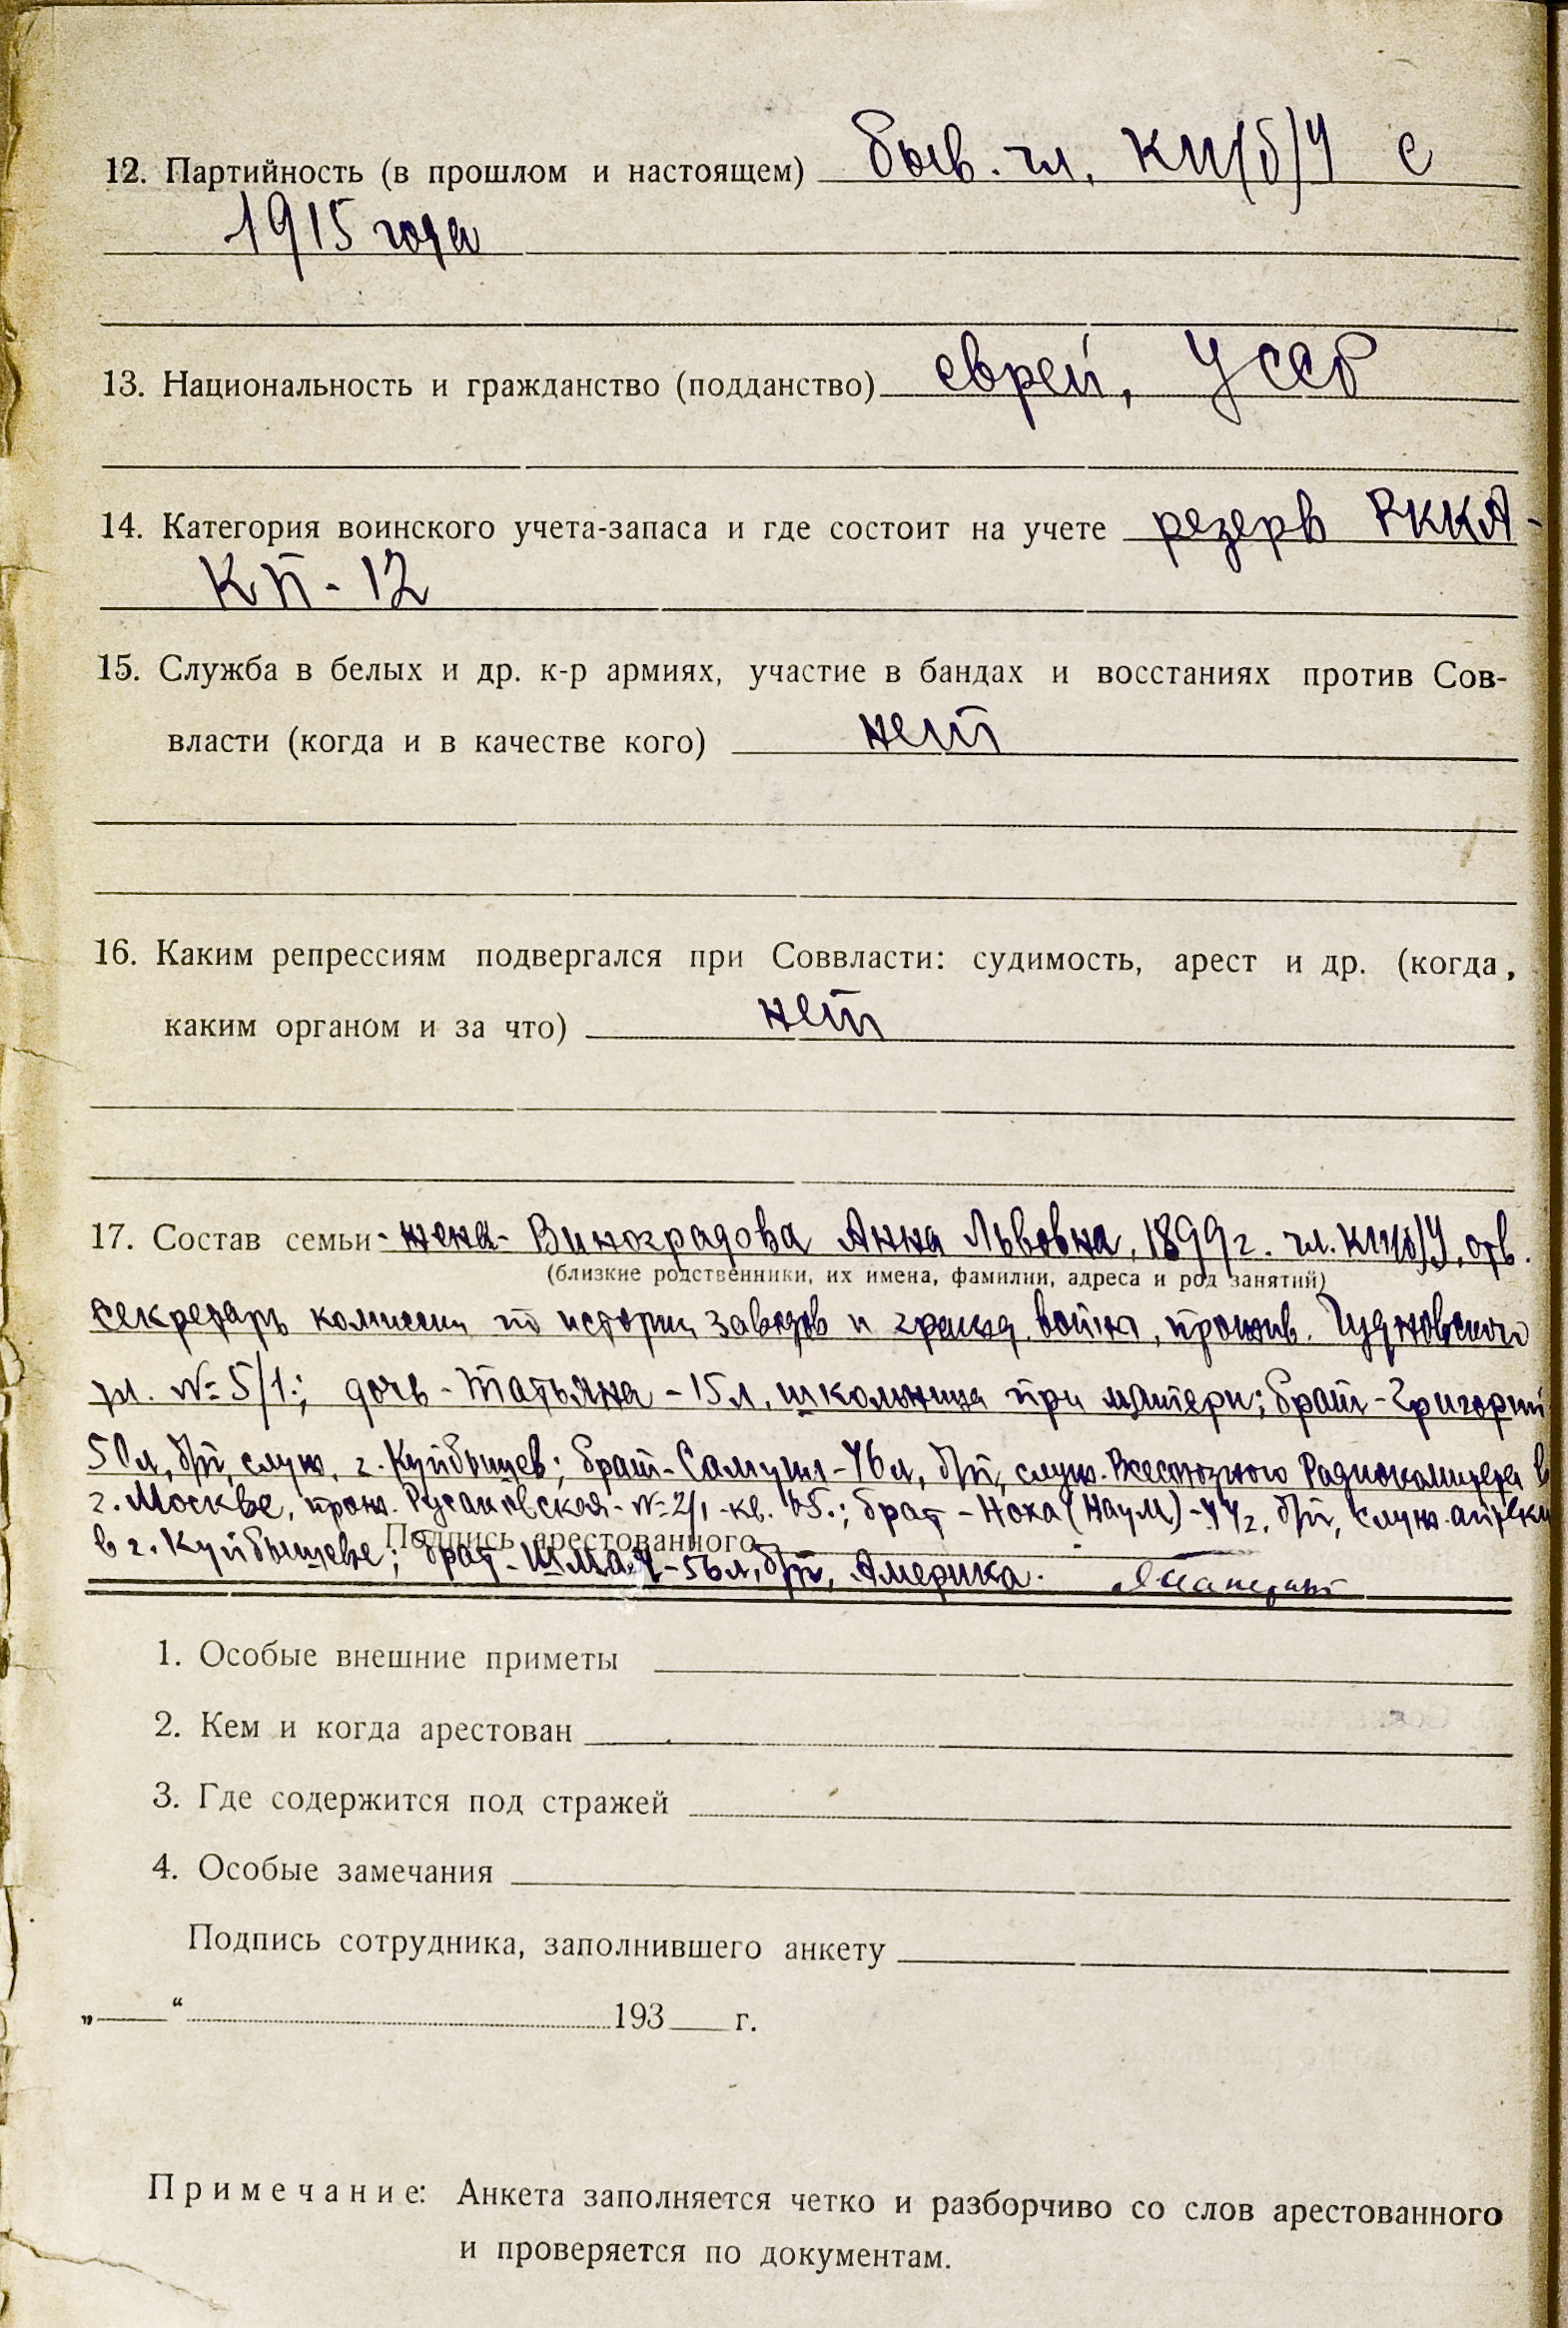 12. Партийность (в прошлом и настоящем) бывв. чл. КП(б)У с
1915 года
13. Национальность и гражданство (подданство) еврей, УССР
14. Категория воинского учета-запаса и где состоит на учете резерв РККА-
КП-12
15. Служба в белых и др. к-р армиях, участие в бандах и восстаниях против Сов-
власти (когда и в качестве кого) нет
16. Каким репрессиям подвергался при Соввласти: судимость, арест и др. (когда,
каким органом и за что) нет
17. Состав семьи - жена - Виноградова Анна Львовна, 1899 г. чл. КП(б)У, отв.
(близкие родственники, их имена, фамилии, адреса и род занятий)
секретарь комиссии по истории заводов и гражд. войны, прожив. Чудновского
ул. № 5/1; дочь - Татьяна - 15 л. школьница при матери; брат - Григорий
50 л, б/п, служ. г. Куйбышев; брат - Самуил - 46 л, б/п, служ. Всесоюзного Радиокомитета в
г. Москве, прож. Русаковская - № 2/1 - кв. 45.; брат - Ноха (Наум) - 44 г, б/п, служ. аптеки
в г. Куйбышеве; брат - Шмая - 56 л, б/п, Америка.
Подпись арестованного
1. Особые внешние приметы
2. Кем и когда арестован
3. Где содержится под стражей
4. Особые замечания
Подпись сотрудника, заполнившего анкету
„ “ 193 г.
Примечание: Анкета заполняется четко и разборчиво со слов арестованного
и проверяется по документам.